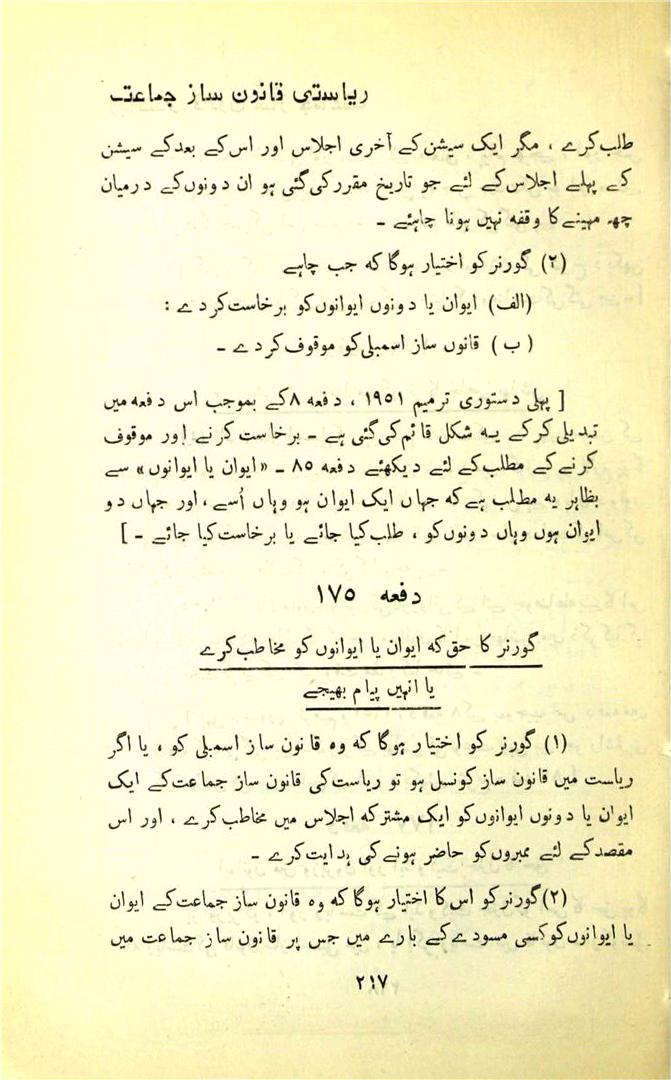 ریاستی قانون ساز جماعت
طلب کرے ، مگر ایک سیشن کے آخری اجلاس اور اس کے بعد کے سیشن
کے پہلے اجلاس کے لئے جو تاریخ مقرر کی گئی ہو ان دونوں کے درمیان
چھ مہینے کا وقفہ نہیں ہونا چاہئے ۔
(۲) گورنر کو اختیار ہوگا کہ جب چاہے
(الف) ایوان یا دونوں ایوانوں کو برخاست کردے :
(ب) قانوں ساز اسمبلی کو موقوف کردے ۔
[ پہلی دستوری ترمیم ۱۹۵۱ ، دفعہ ۸ کے بموجب اس دفعہ میں
تبدیلی کرکے یہ شکل قائم کی گئی ہے ۔ برخاست کرنے اور موقوف
کرنے کے مطلب کے لئے دیکھئے دفعہ ۸۵ ۔ «ایوان یا ایوانوں» سے
بظاہر یہ مطلب ہے کہ جہاں ایک ایوان ہو وہاں اُسے ، اور جہاں دو
ایوان ہوں وہاں دونوں کو ، طلب کیا جائے یا برخاست کیا جائے ۔ ]
دفعہ ۱۷۵
گورنر کا حق کہ ایوان یا ایوانوں کو مخاطب کرے
یا انہیں پیام بھیجے
(۱) گورنر کو اختیار ہوگا کہ وہ قانون ساز اسمبلی کو ، یا اگر
ریاست میں قانون ساز کونسل ہو تو ریاست کی قانون ساز جماعت کے ایک
ایوان یا دونوں ایوانوں کو ایک مشترکہ اجلاس میں مخاطب کرے ، اور اس
مقصد کے لئے ممبروں کو حاضر ہونے کی ہدایت کرے ۔
(۲) گورنر کو اس کا اختیار ہوگا کہ وہ قانون ساز جماعت کے ایوان
یا ایوانوں کو کسی مسودے کے بارے میں جس پر قانون ساز جماعت میں
۲۱۷